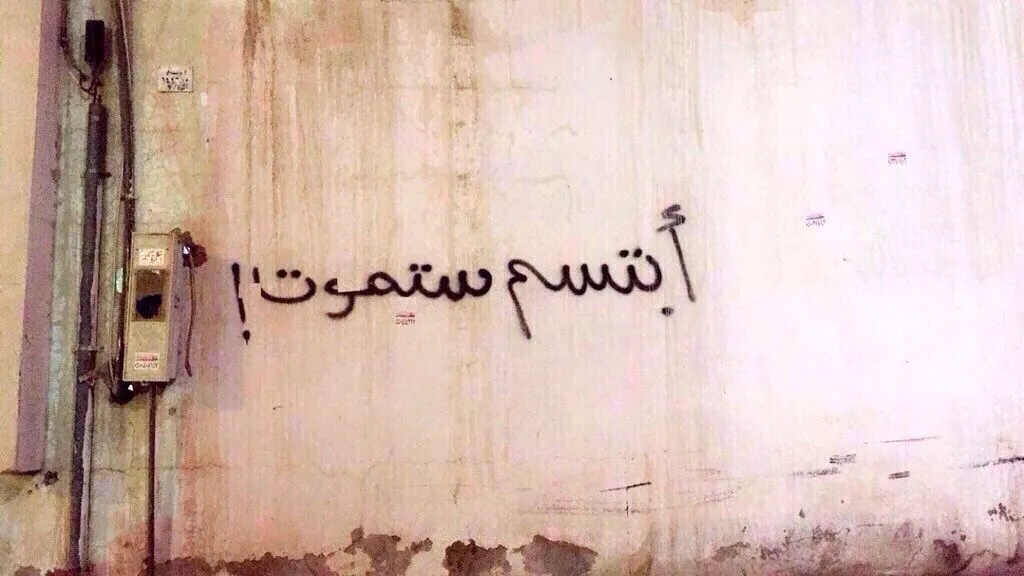 أبتسم ستموت!